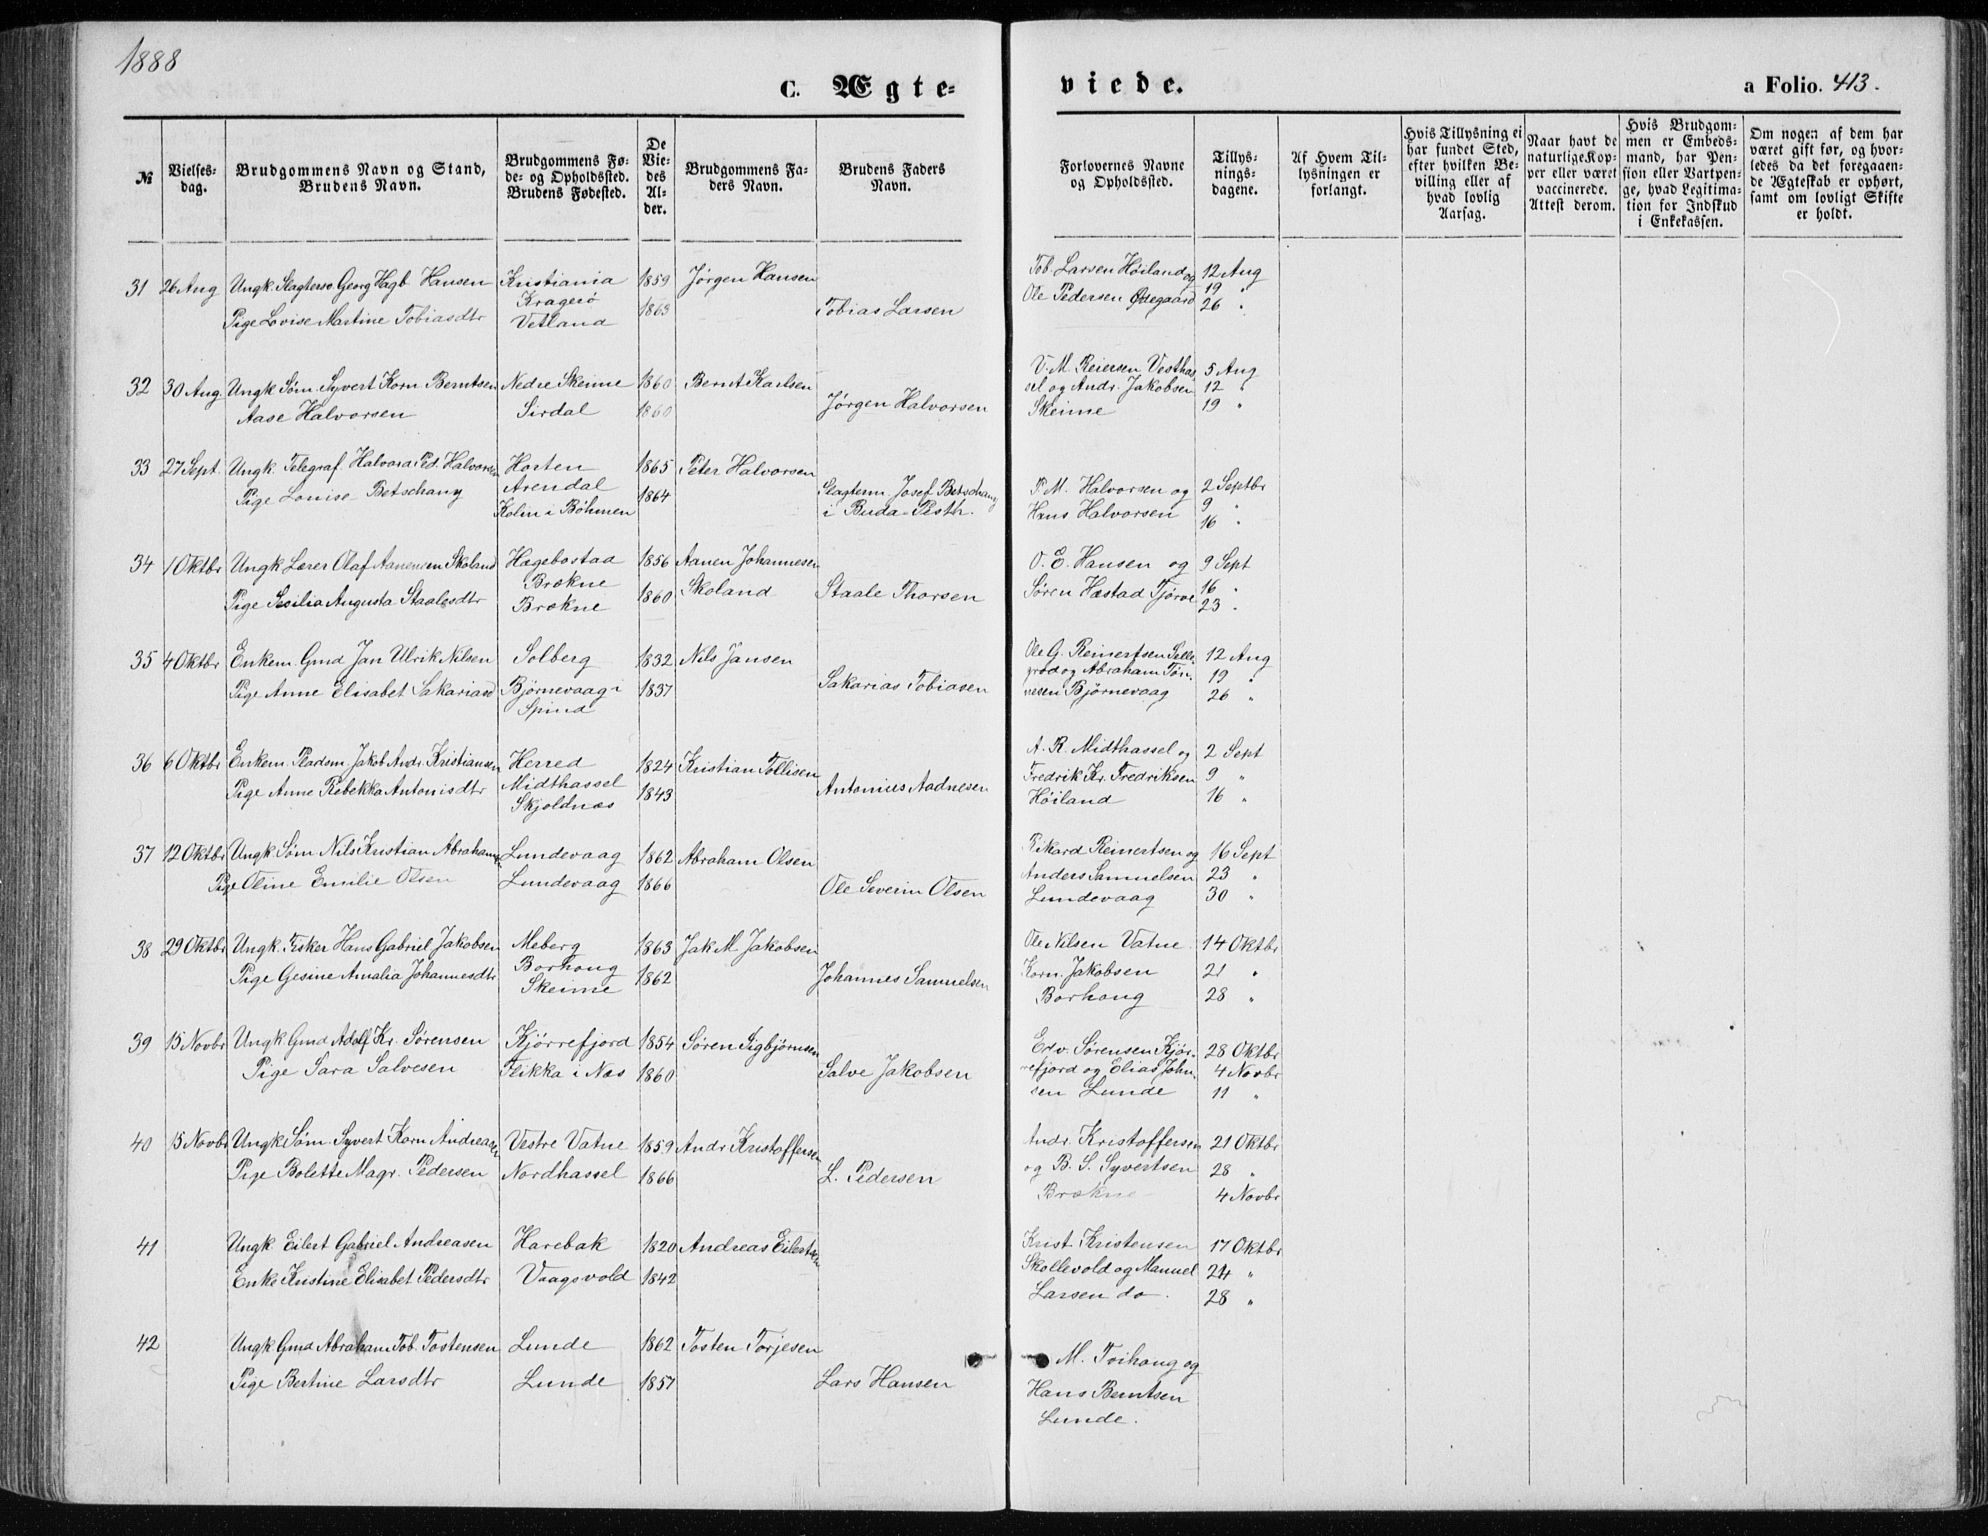 1888
C. Ægte-
viede.
a Folio. 413.
№
Vielses-
dag.
Brudgommens Navn og Stand,
Brudens Navn.
Brudgommens Fø-
de- og Opholdssted.
Brudens Fødested.
De
Vie-
des
Al-
der.
Brudgommens Fa-
ders Navn.
Brudens Faders
Navn.
Forlovernes Navne
og Opholdssted.
Tillys-
nings-
dagene.
Af Hvem Til-
lysningen er
forlangt.
Hvis Tillysning ei
har fundet Sted,
efter hvilken Be-
villing eller af
hvad lovlig
Aarsag.
Naar havt de
naturlige Kop-
per eller været
vaccinerede.
Attest derom.
Hvis Brudgom-
men er Embeds-
mand, har Pen-
sion eller Vartpen-
ge, hvad Legitima-
tion for Indskud
i Enkekassen.
Om nogen af dem har
været gift før, og hvor-
ledes da det foregaaen-
de Ægteskab er ophørt,
samt om lovligt Skifte
er holdt.
31 26 Aug Ungk. Slagtersv. Georg Hagb Hansen Kristiania 1859 Jørgen Hansen Tob. Larsen Høiland og 12 Aug
Kragerö Ole Pedersen Ødegaard 19 "
Pige Lovise Martine Tobiasdtr Vetland 1863 Tobias Larsen 26 "
V. M. Reiersen Vesthas 5 Aug
32 30 Aug Ungk Søm. Syvert Korn Berntsen Nedre Skeime 1860 Bernt Karlsen sel og Andr. Jakobsen 12 "
Aase Halvorsen Sirdal 1860 Jørgen Halvorsen Skeime 19 "
33 27 Sept. Ungk. Telegraf. Halvard Ped. Halvorsen Horten 1865 Peter Halvorsen
Pige Louise Betschany Arendal 1864 Slagterm Josef Betschany P. M. Halvorsen og 2 Septbr
Kolin i Bøhmen i Buda-Pesth. Hans Halvorsen 9 "
16 "
34 1 Oktbr Ungk Lærer Olaf Aanensen Skoland Hægebostad 1856 Aanen Johannesen O. E. Hansen og 9 Sept
Brækne Skoland Søren Hæstad Tjørve 16 "
Pige Sesilia Augusta Staalesdtr Brækne 1860 Staale Thorsen 23 "
35 4 Oktbr Enkem. Gmd Jan Ulrik Nilsen Solberg 1832 Nils Jansen Ole G. Reinertsen Selle- 12 Aug
Pige Anne Elisabet Sakariasd Bjørnevaag i 1837 Sakarias Tobiasen grød og Abraham Tøn- 19 "
Spind nesen Bjørnevaag 26 "
36 6 Oktbr Enkem. Pladsm. Jakob Andr. Kristiansen Herred 1824 Kristian Tollisen A. R. Midthassel og 2 Sept
Pige Anne Rebekka Antonisdtr Midthassel 1843 Antonius Aadnesen Fredrik Kr. Fredriksen 9 "
Skjoldnæs Høiland 16 "
37 12 Oktbr Ungk. Søm Nils Kristian Abrahamsen Lundevaag 1862 Abraham Olsen Rikard Reinertsen og 16 Sept
Pige Oline Emilie Olsen Lundevaag 1866 Ole Severin Olsen Anders Samuelsen 23 "
Lundevaag 30 "
38 29 Oktbr Ungk. Fisker Hans Gabriel Jakobsen Meberg 1863 Jak M. Jakobsen Ole Nilsen Vatne 14 Oktbr
Pige Gesine Amalia Johannesdtr Borhaug 1862 Johannes Samuelsen Korn. Jakobsen 21 "
Skeime Borhaug 28 "
39 15 Novbr Ungk Gmd Adolf Kr. Sørensen Kjørrefjord 1854 Søren Sigbjørnsen Edv. Sørensen Kjør- 28 Oktbr
Pige Sara Salvesen Flikka i Næs 1860 Salve Jakobsen refjord og Elias John- 4 Novbr
sen Lunde 11 "
40 15 Novbr Ungk Søm. Syvert Korn Andreasen Vestre Vatne 1859 Andr Kristoffersen Andr. Kristoffersen 21 Oktbr
Pige Bolette Magr. Pedersen Nordhassel 1866 L. Pedersen og B. S. Syvertsen 28 "
Brækne 4 Novbr
41 Ungk Eilert Gabriel Andreasen Harebak 1820 Andreas Eilertsen Krist. Kristensen 17 Oktbr
Enke Kristine Elisabet Pedersdtr Vaagsvold 1842 Skollevold og Manuel 24 "
Larsen do. 28 "
42 Ungk Gmd Abraham Tob. Tostensen Lunde 1862 Tosten Torjesen M. Torhaug og
Pige Bertine Larsdtr Lunde 1857 Lars Hansen Hans Berntsen
Lunde.